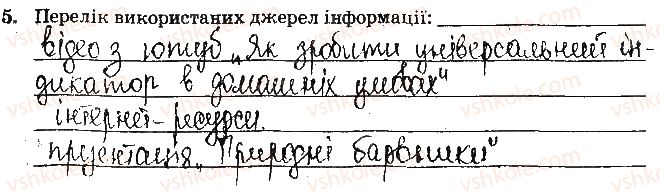 5. Перелік використаних джерел інформації:
відео з ютуб „Як зробити універсальний ін-
дикатор в домашніх умовах"
інтернет-ресурси.
презентація „Природні барвники"
vshkole.com
vshkole.com
vshkole.com